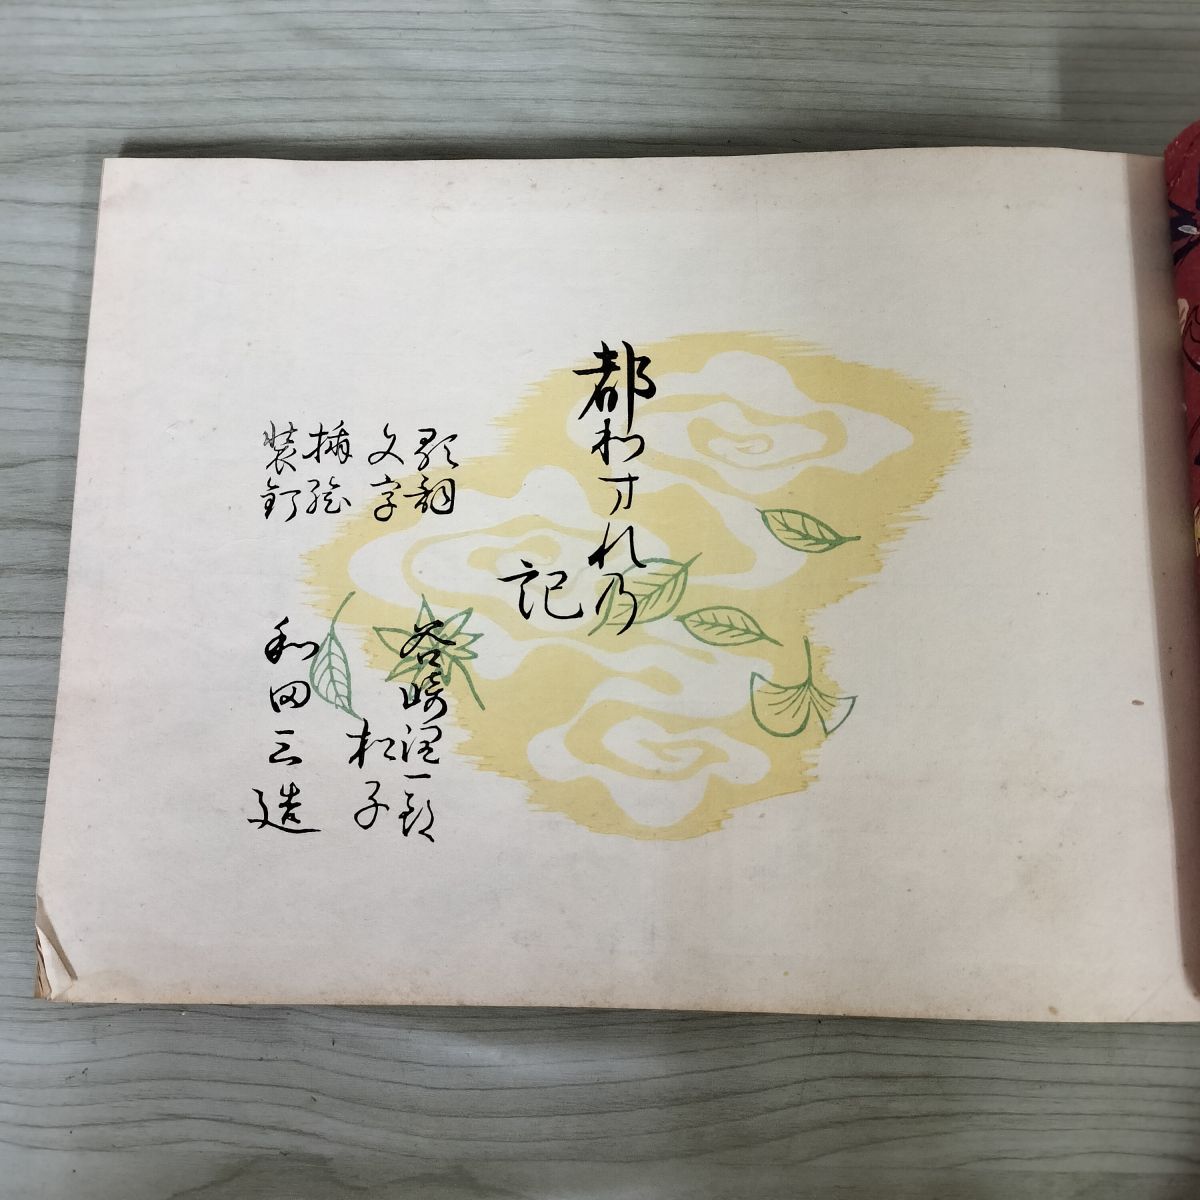 都わすれの
記
歌詞 谷崎潤一郎
文字 松子
挿絵
装釘 和田三造